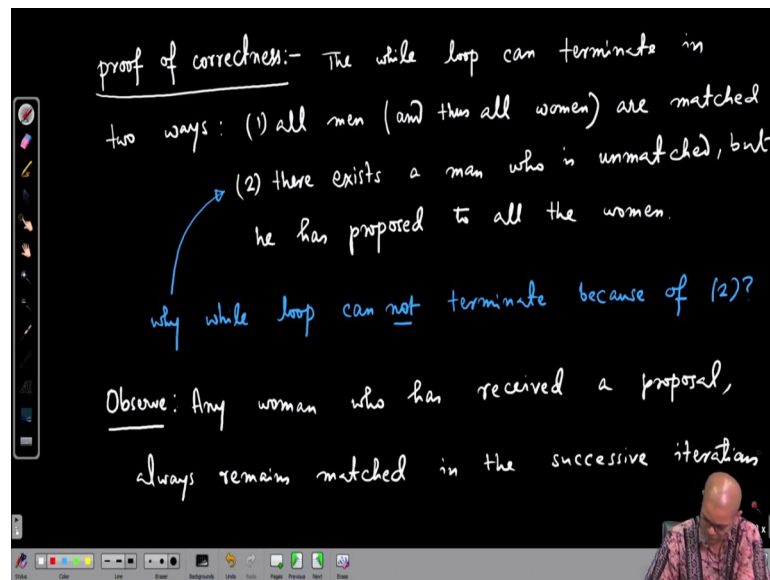 proof of correctness:- The while loop can terminate in
two ways: (1) all men (and thus all women) are matched
(2) there exists a man who is unmatched, but
he has proposed to all the women.
why while loop can not terminate because of (2)?
Observe: Any woman who has received a proposal,
always remains matched in the successive iterations
Stylus Color Line Eraser Backgrounds Undo Redo Pages Previous Next Erase